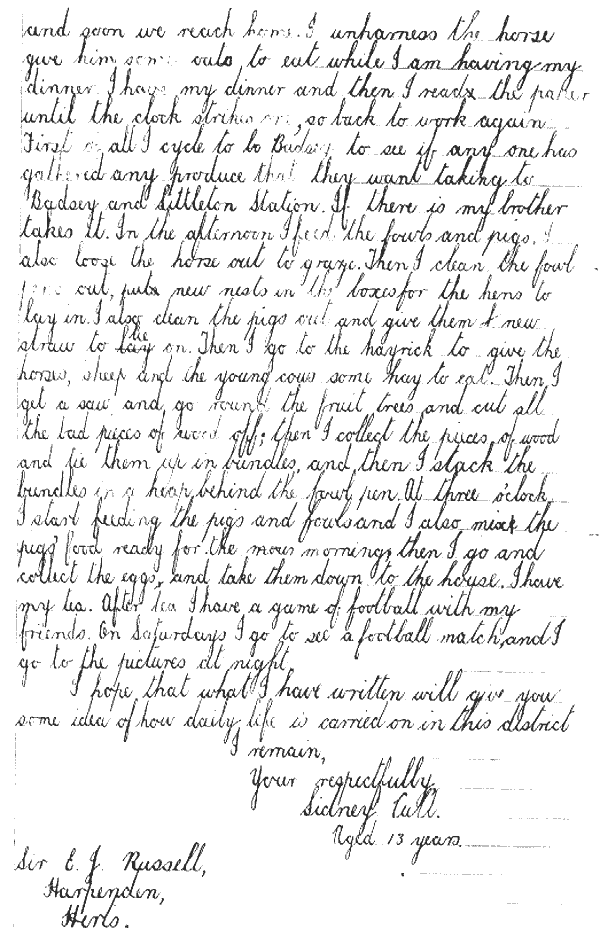 and soon we reach home. I unharness the horse
give him some oats to eat while I am having my
dinner. I have my dinner and then I reads the paper
until the clock strikes one, so back to work again.
First of all I cycle to to Badsey to see if any one has
gathered any produce that they want taking to
Badsey and Littleton Station. If there is my brother
takes it. In the afternoon I feed the fowls and pigs. I
also loose the horse out to graze. Then I clean the fowl
pens out, puts new nests in the boxes for the hens to
lay in. I also clean the pigs out and give them new
straw to lie on. Then I go to the hayrick to give the
horses, sheep and the young cows some hay to eat. Then I
get a saw and go round the fruit trees and cut all
the bad pieces of wood off; then I collect the pieces of wood
and tie them up in bundles, and then I stack the
bundles in a heap behind the fowl pen. At three o'clock
I start feeding the pigs and fowls and I also mix the
pigs' food ready for the morning; then I go and
collect the eggs, and take them down to the house. I have
my tea. After tea I have a game of football with my
friends. On Saturdays I go to see a football match, and I
go to the pictures at night.
I hope that what I have written will give you
some idea of how daily life is carried on in this district
I remain,
Your respectfully
Sidney Cull.
Aged 13 years.
Sir E. J. Russell,
Harpenden,
Herts.